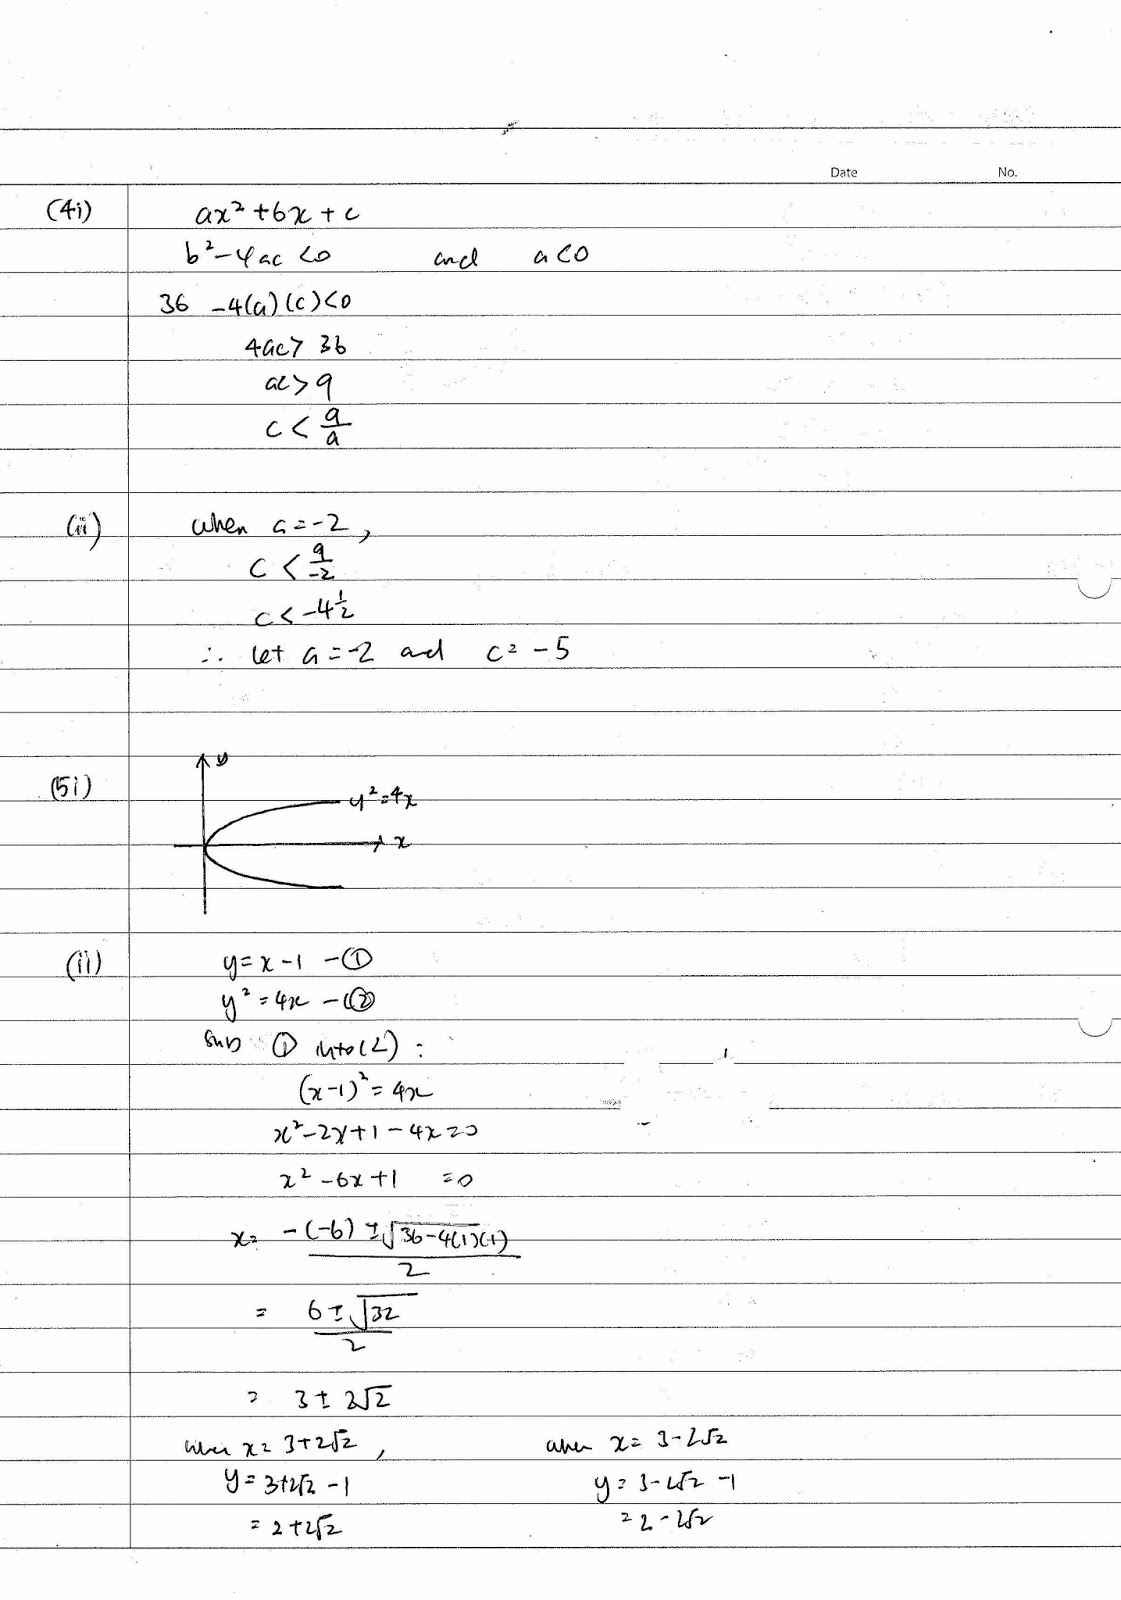 Date No.
(4i) ax² + 6x + c
b² - 4ac < 0 and a < 0
36 - 4(a)(c) < 0
4ac > 36
ac > 9
c < 9/a
(ii) when a = -2,
c < 9/-2
c < -4 1/2
∴ let a = -2 and c = -5
(5i) y
y² = 4x
x
(ii) y = x - 1 - ①
y² = 4x - ②
sub ① into (2) :
(x-1)² = 4x
x² - 2x + 1 - 4x = 0
x² - 6x + 1 = 0
x = (-(-6) ± √(36 - 4(1)(1)))/2
= (6 ± √32)/2
= 3 ± 2√2
when x = 3 + 2√2 , when x = 3 - 2√2
y = 3 + 2√2 - 1 y = 3 - 2√2 - 1
= 2 + 2√2 = 2 - 2√2